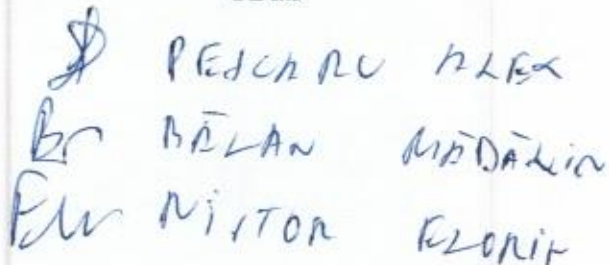 PESCARU ALEX
BĂLAN MĂDĂLIN
NISTOR FLORIN